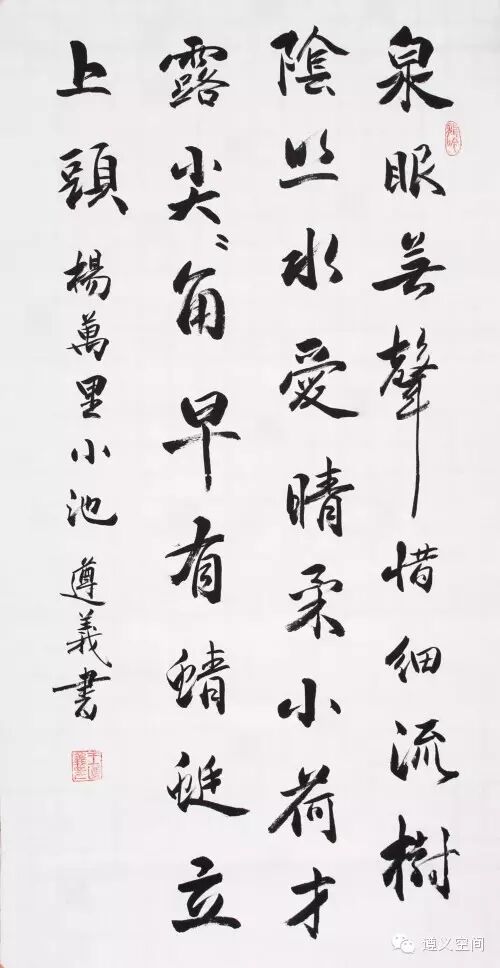 泉眼無聲惜細流樹
陰照水愛晴柔小荷才
露尖〻角早有蜻蜓立
上頭 楊萬里小池 遵義書
遵义空间